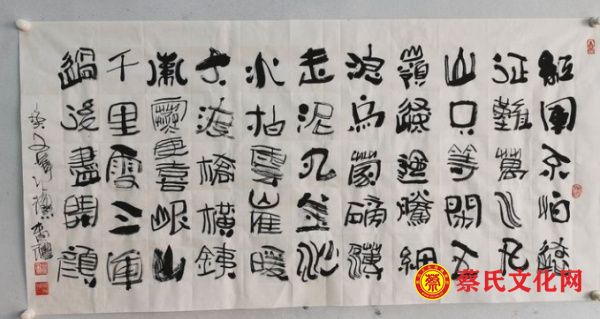 紅軍不怕遠
征難萬水千
山只等閑五
嶺逶迤騰細
浪烏蒙磅礴
走泥丸金沙
水拍雲崖暖
大渡橋橫鐵
索寒更喜岷山
千里雪三軍
過後盡開顏
蔡
蔡氏文化网